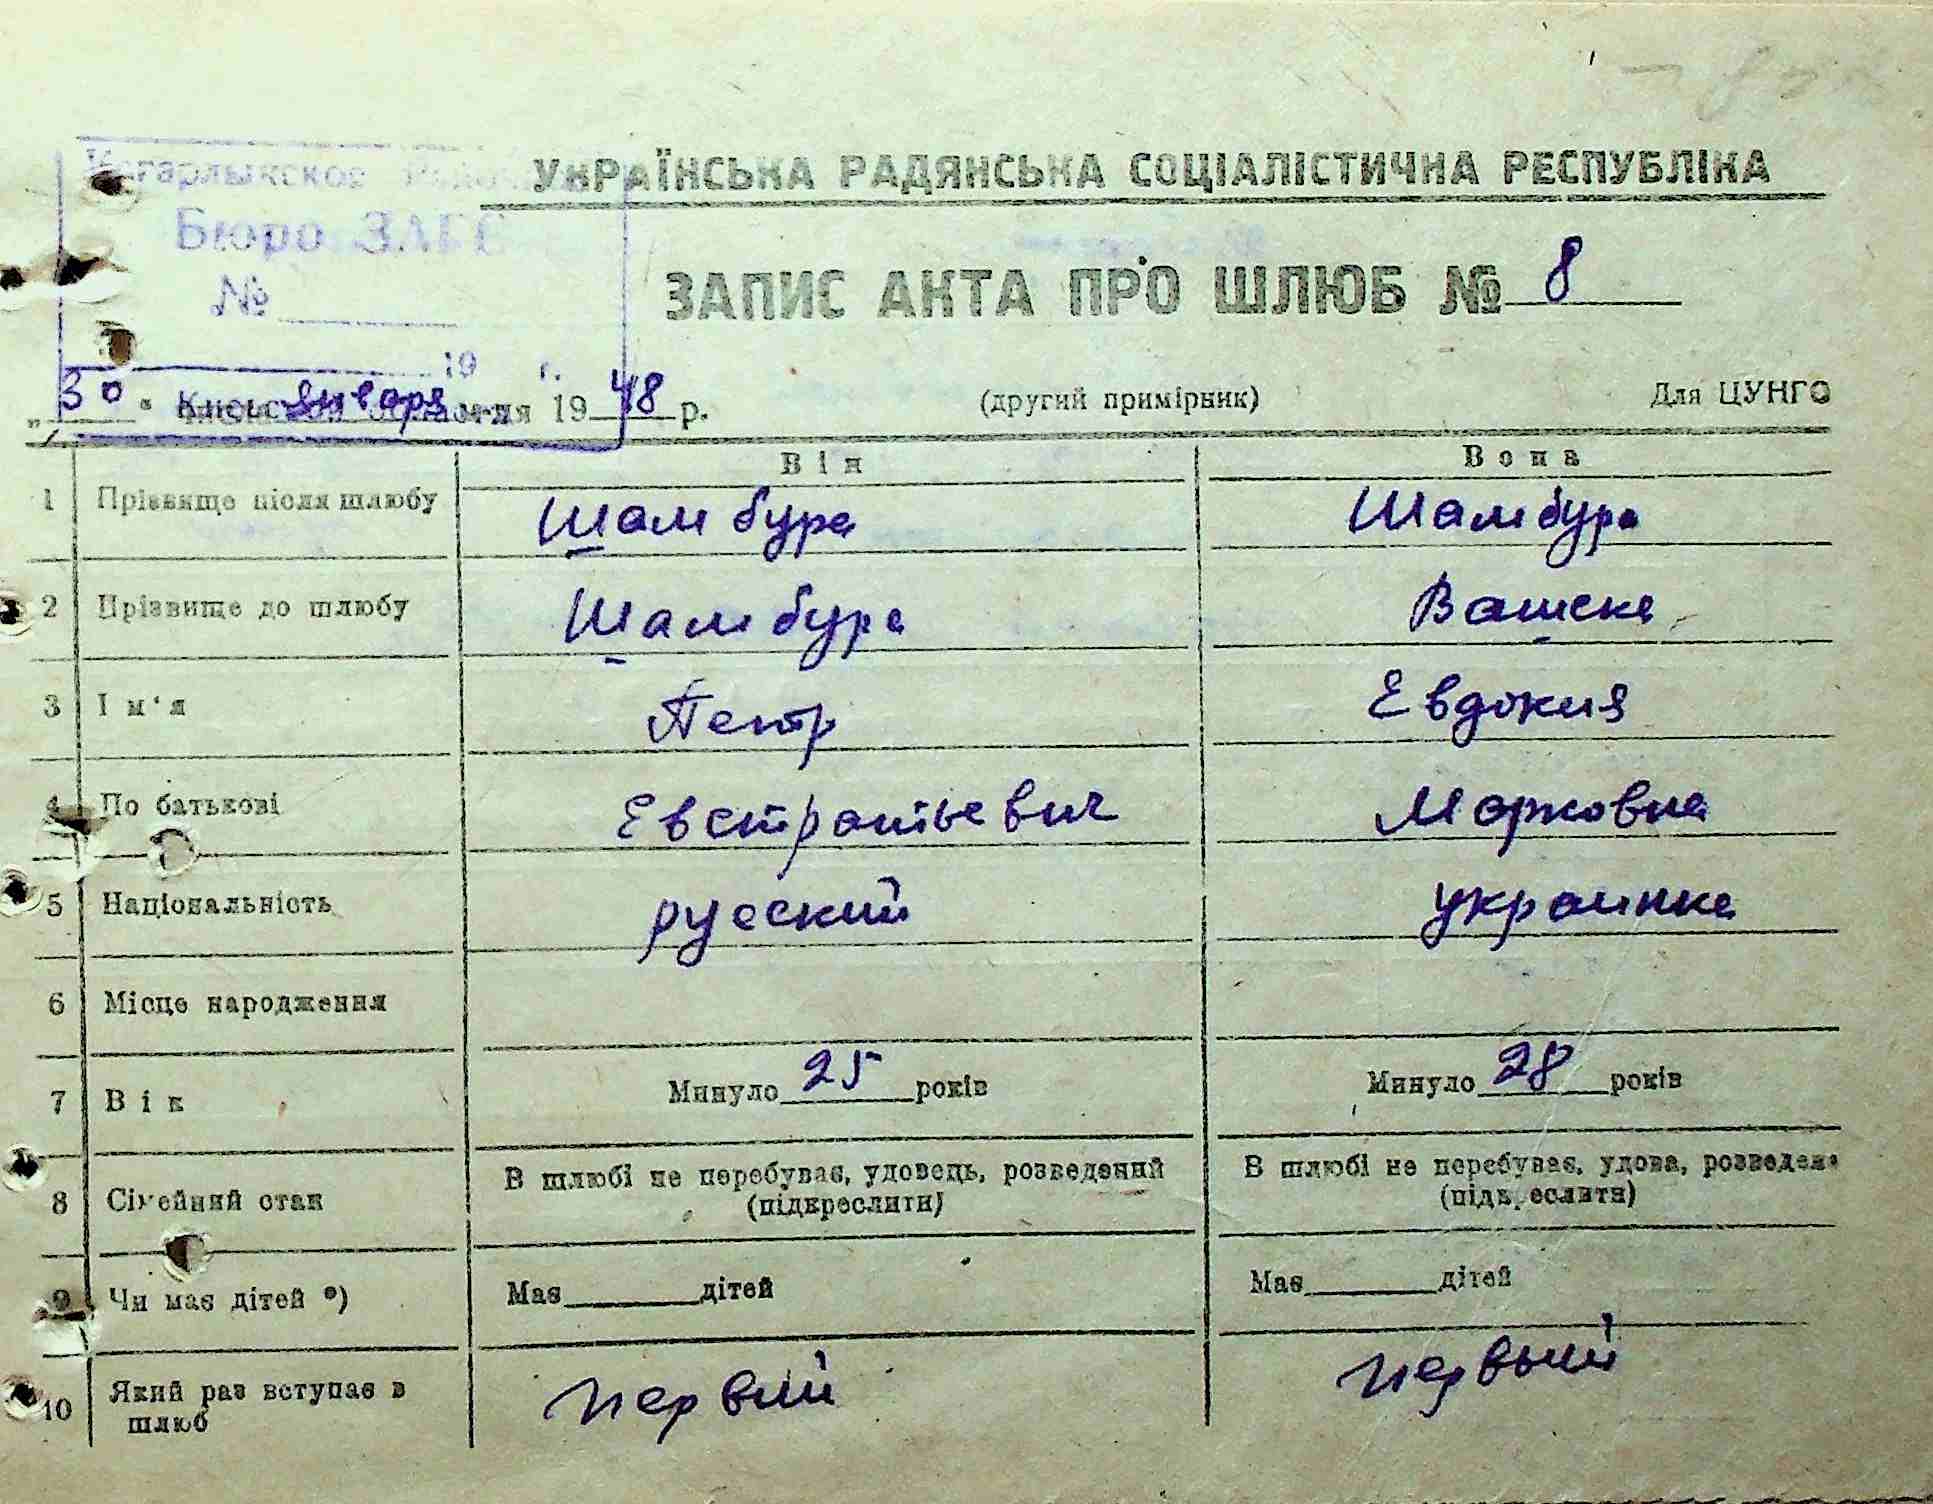 Кагарлыкское
УКРАЇНСЬКА РАДЯНСЬКА СОЦІАЛІСТИЧНА РЕСПУБЛІКА
Бюро ЗАГС
№
ЗАПИС АКТА ПРО ШЛЮБ № 8
19 г.
„30“ января 1948 р.
(другий примірник)
Для ЦУНГО
Він
Вона
1 Прізвище після шлюбу Шамбура Шамбура
2 Прізвище до шлюбу Шамбура Вашека
3 Ім'я Петр Евдокия
4 По батькові Евстратьевич Марковна
5 Національність русский украинка
6 Місце народження
7 Вік Минуло 25 років Минуло 28 років
8 Сімейний стан В шлюбі не перебуває, удовець, розведений В шлюбі не перебуває, удова, розведена
(підкреслити) (підкреслити)
9 Чи має дітей *) Має дітей Має дітей
10 Який раз вступає в шлюб первий первый